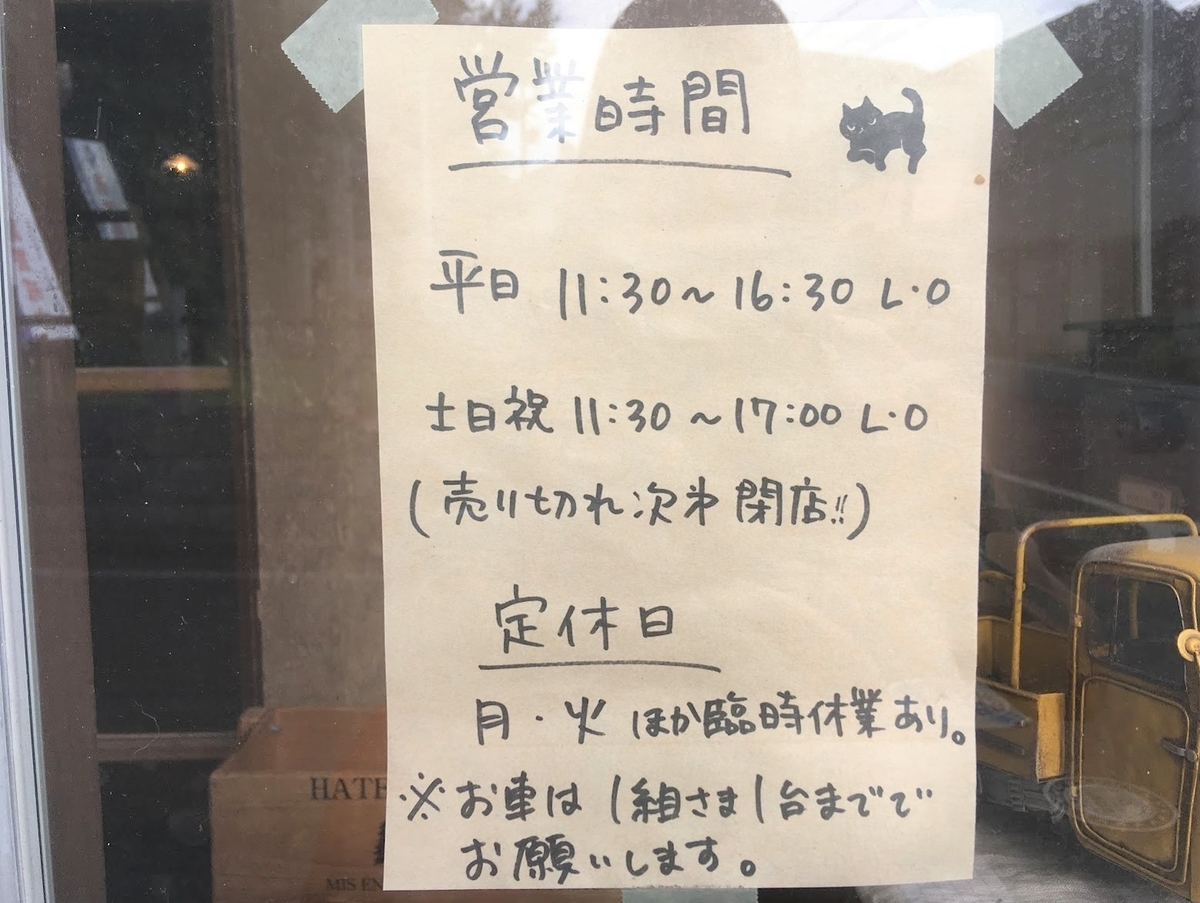 営業時間
平日 11:30～16:30 L・O
土日祝 11:30～17:00 L・O
(売り切れ次第閉店!!)
定休日
月・火 ほか臨時休業あり。
※お車は1組さま1台までで
お願いします。
HATE
MIS EN